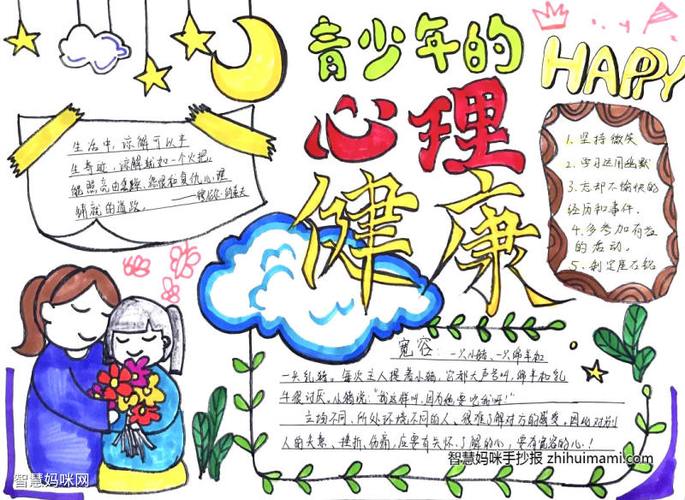 青少年的
心理
健康
HAPPY
生活中,谅解可以产
生奇迹,谅解就如一个火把,
能照亮由焦躁、怨恨和复仇心理
铺就的道路。
1.坚持微笑
2.学习运用幽默
3.忘却不愉快的
经历和事件.
4.多参加有益
的活动。
5.制定座右铭
宽容:一只小猪、一只绵羊和
一头乳牛。每次主人捉着小猪,它都大声号叫,绵羊和乳
牛很讨厌。小猪说:"我这样叫,因为他要吃我呀!"
立场不同、所处环境不同的人,很难了解对方的感受,因此对别
人的失意、挫折、伤痛,应要有关怀、了解的心,要有宽容的心!
智慧妈咪手抄报 zhihuimami.com
智慧妈咪网